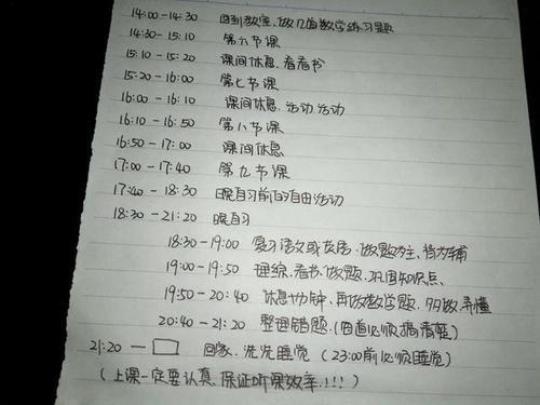 14:00-14:30 回到教室,做几道数学练习题
14:30-15:10 第六节课
15:10-15:20 课间休息,看看书
15:20-16:00 第七节课
16:00-16:10 课间休息,活动活动
16:10-16:50 第八节课
16:50-17:00 课间休息
17:00-17:40 第九节课
17:40-18:30 晚自习前的自由活动
18:30-21:20 晚自习
18:30-19:00 复习语文或英语,做题为主,背为辅
19:00-19:50 理综,看书,做题,巩固知识点、
19:50-20:40 休息十分钟,再做数学题,多做,弄懂
20:40-21:20 整理错题,(四道必须搞清楚)
21:20-□ 回家,洗洗睡觉(23:00前必须睡觉)
(上课一定要认真,保证听课效率!!!)